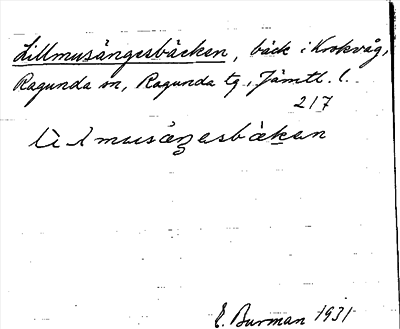 Lillmusångesbäcken, bäck i Krokvåg,
Ragunda sn, Ragunda tg, Jämtl. l.
217
musångesbäkan
E. Burman 1931